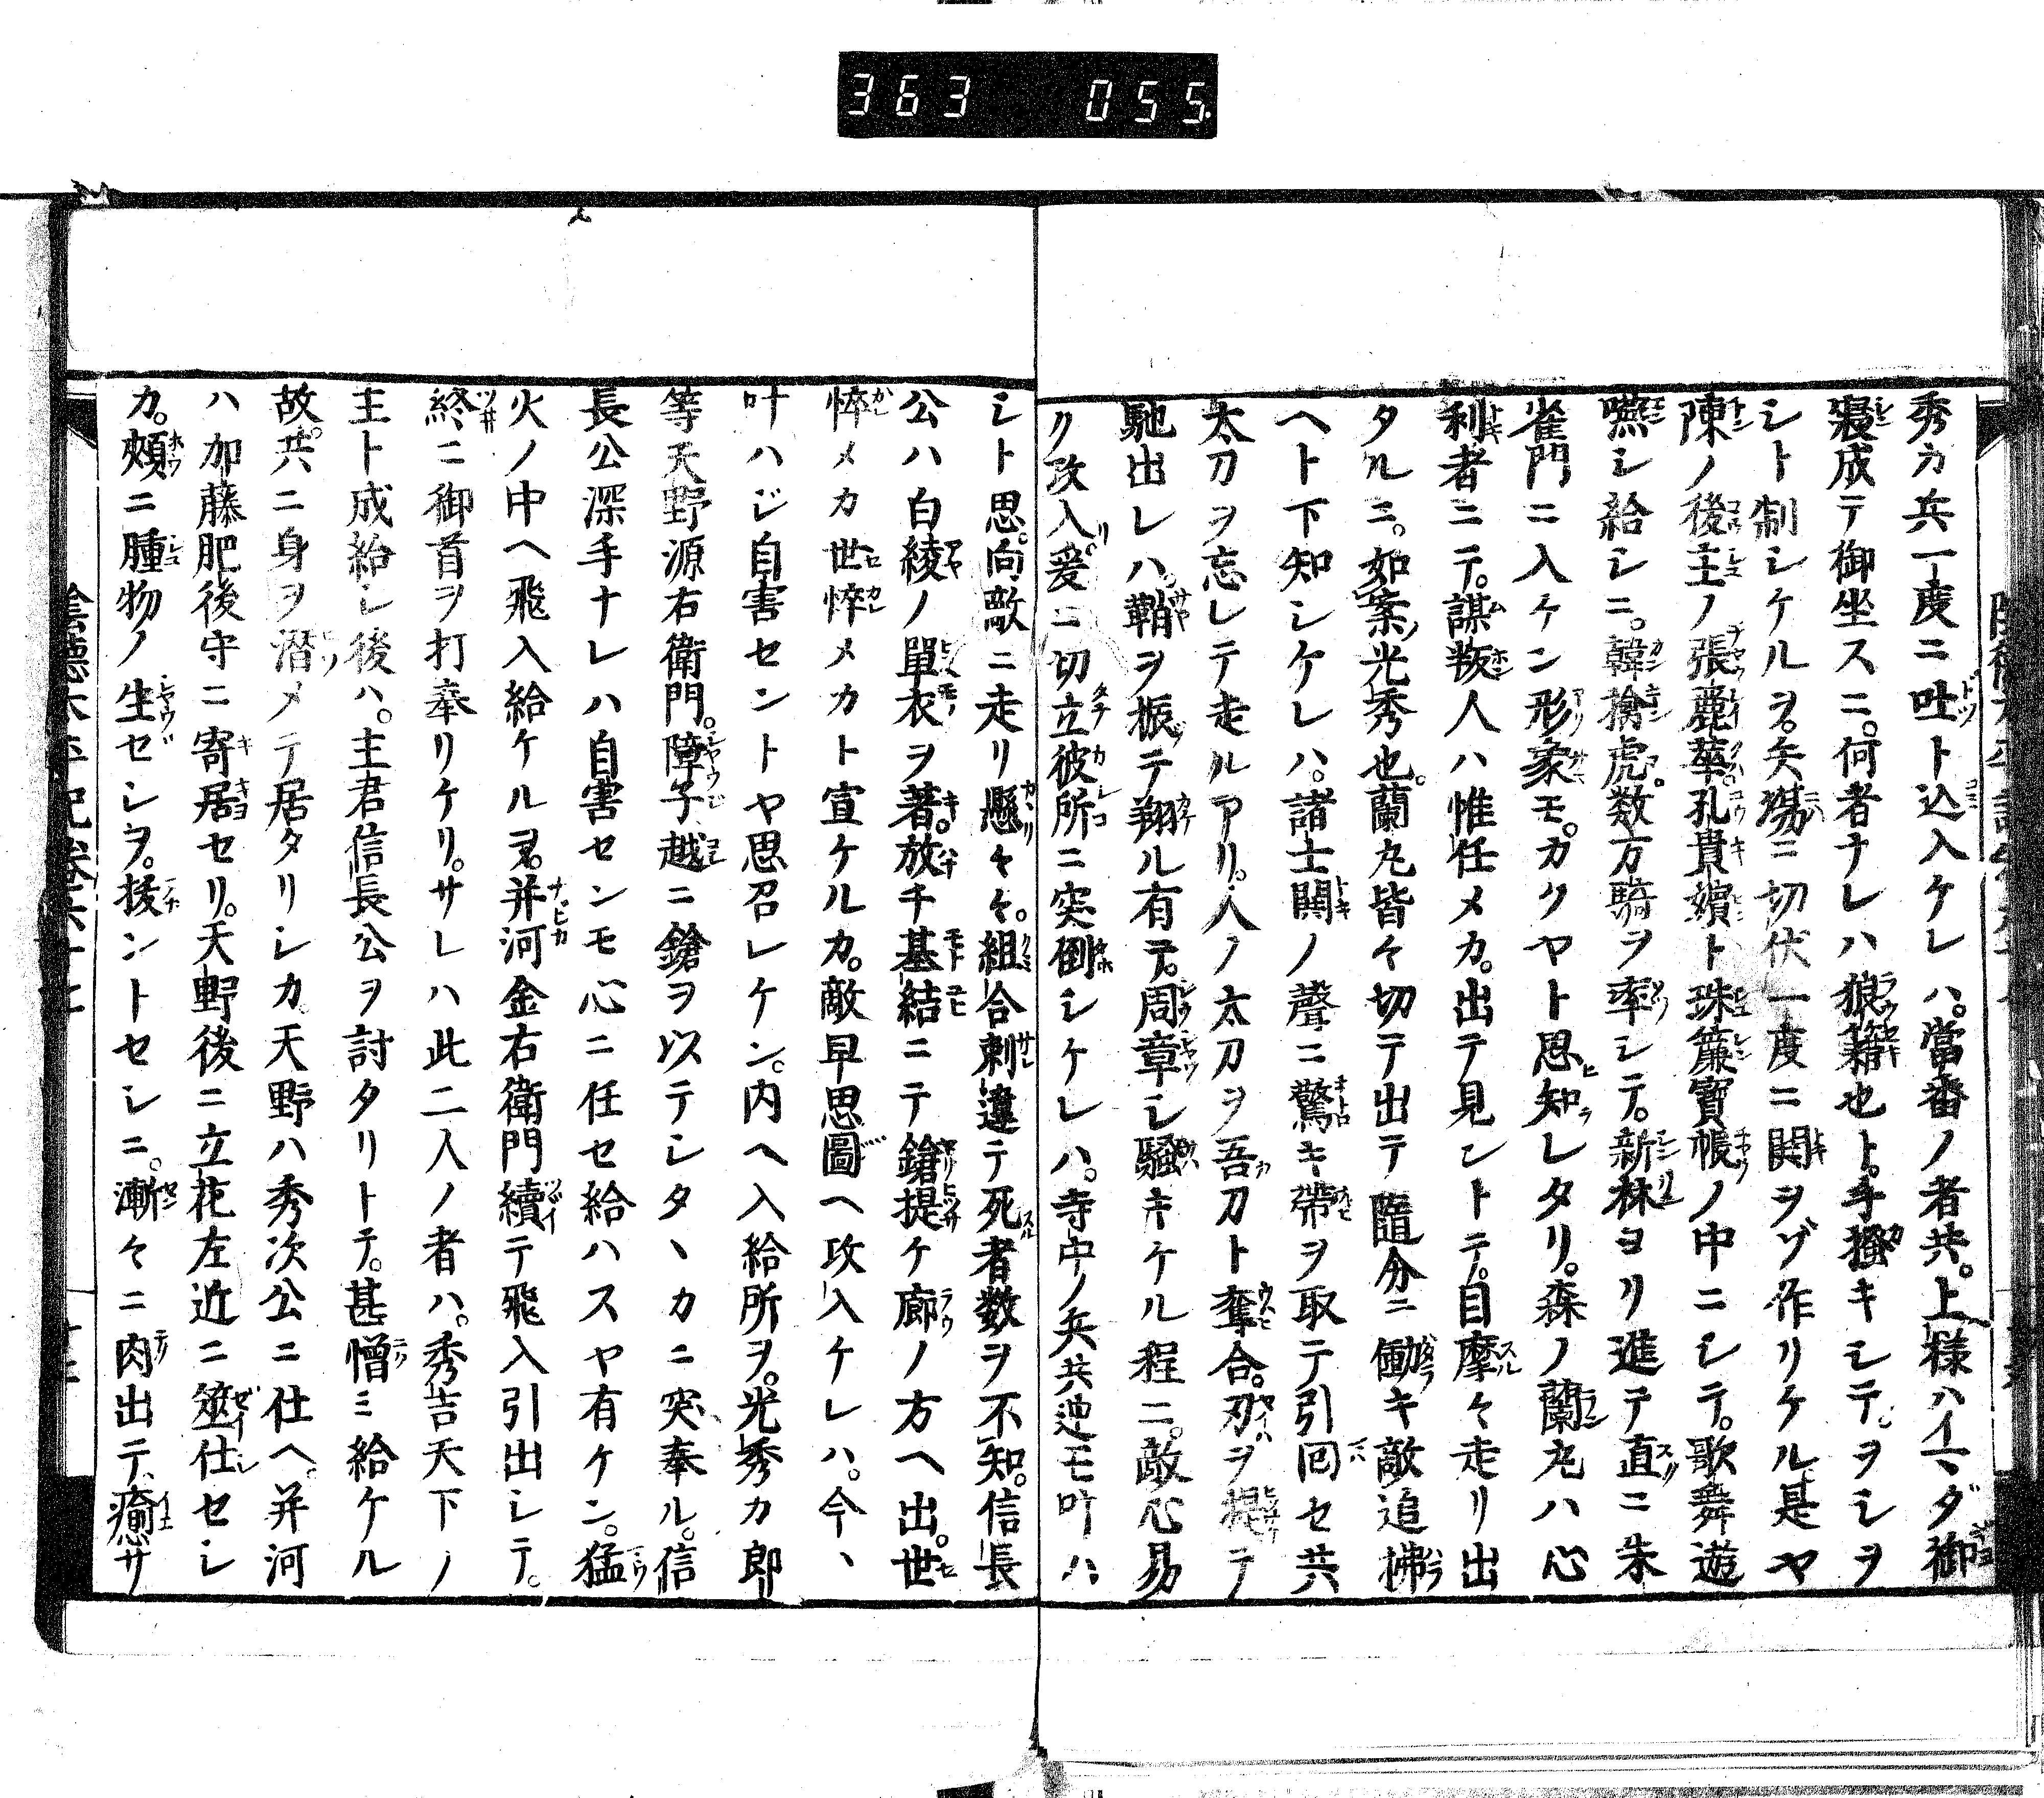 363 055
秀カ兵一度ニ吐ト込入ケレハ。當番ノ者共。上様ハイマダ御
寝成テ御坐スニ。何者ナレハ狼藉也ト。手掻キシテ。ヲシヲ
シト制シケルヲ。矢場ニ切伏一度ニ鬨ヲゾ作リケル是ヤ
陳ノ後主ノ張麗華。孔貴嬪ト珠簾寶帳ノ中ニシテ。歌舞遊
嚥シ給シニ。韓擒虎。数万騎ヲ率シテ。新林ヨリ進テ直ニ朱
雀門ニ入ケン形象モ。カクヤト思知レタリ。森ノ蘭丸ハ心
利者ニテ。謀叛人ハ惟任メカ。出テ見ントテ。目摩々走リ出
タルニ。如案光秀也。蘭丸皆々切テ出テ隨分ニ働キ敵追拂
ヘト下知シケレハ。諸士鬨ノ聲ニ驚キ帶ヲ取テ引回セ共
太刀ヲ忘レテ走ルアリ。人ノ太刀ヲ吾刀ト奪合。刃ヲ提テ
馳出レハ。鞘ヲ振テ翔ル有テ。周章シ騒キケル程ニ。敵心易
ク攻入。爰ニ切立彼所ニ突倒シケレハ。寺中ノ兵共迚モ叶ハ
シト思。向敵ニ走リ懸々々。組合刺違テ死者数ヲ不知。信長
公ハ白綾ノ單衣ヲ著。放チ基結ニテ鎗提ケ廊ノ方ヘ出。世
悴メカ世悴メカト宣ケルカ。敵早思圖ヘ攻入ケレハ。今ヽ
叶ハジ自害セントヤ思召レケン。内ヘ入給所ヲ。光秀カ郎
等天野源右衛門。障子越ニ鎗ヲ以テシタヽカニ突奉ル。信
長公深手ナレハ自害センモ心ニ任セ給ハスヤ有ケン。猛
火ノ中ヘ飛入給ケルヲ。并河金右衛門續テ飛入引出シテ。
終ニ御首ヲ打奉リケリ。サレハ此二人ノ者ハ。秀吉天下ノ
主ト成給シ後ハ。主君信長公ヲ討タリトテ。甚憎ミ給ケル
故。共ニ身ヲ潜メテ居タリシカ天野ハ秀次公ニ仕ヘ。并河
ハ加藤肥後守ニ寄居セリ。天野後ニ立花左近ニ筮仕セシ
カ。頬ニ腫物ノ生ゼシヲ。拔ントセシニ。漸々ニ肉出テ、癒サ